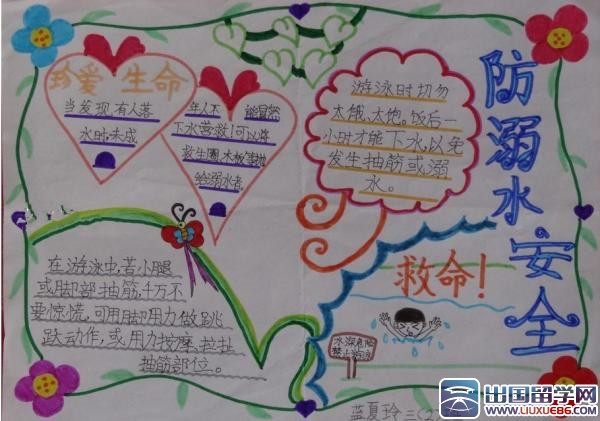 防溺水安全
珍爱 生命
当发现有人落
水时,未成
年人不 能冒然
下水营救!可以将
救生圈、木板等抛
给溺水者.
游泳时切勿
太饿、太饱。饭后一
小时才能下水,以免
发生抽筋或溺
水。
在游泳中,若小腿
或脚部抽筋,千万不
要惊慌,可用脚用力做跳
跃动作,或用力按摩、拉扯
抽筋部位。
救命!
水深危险
蓝夏玲 三(2)
出国留学网
WWW.LIUXUE86.COM